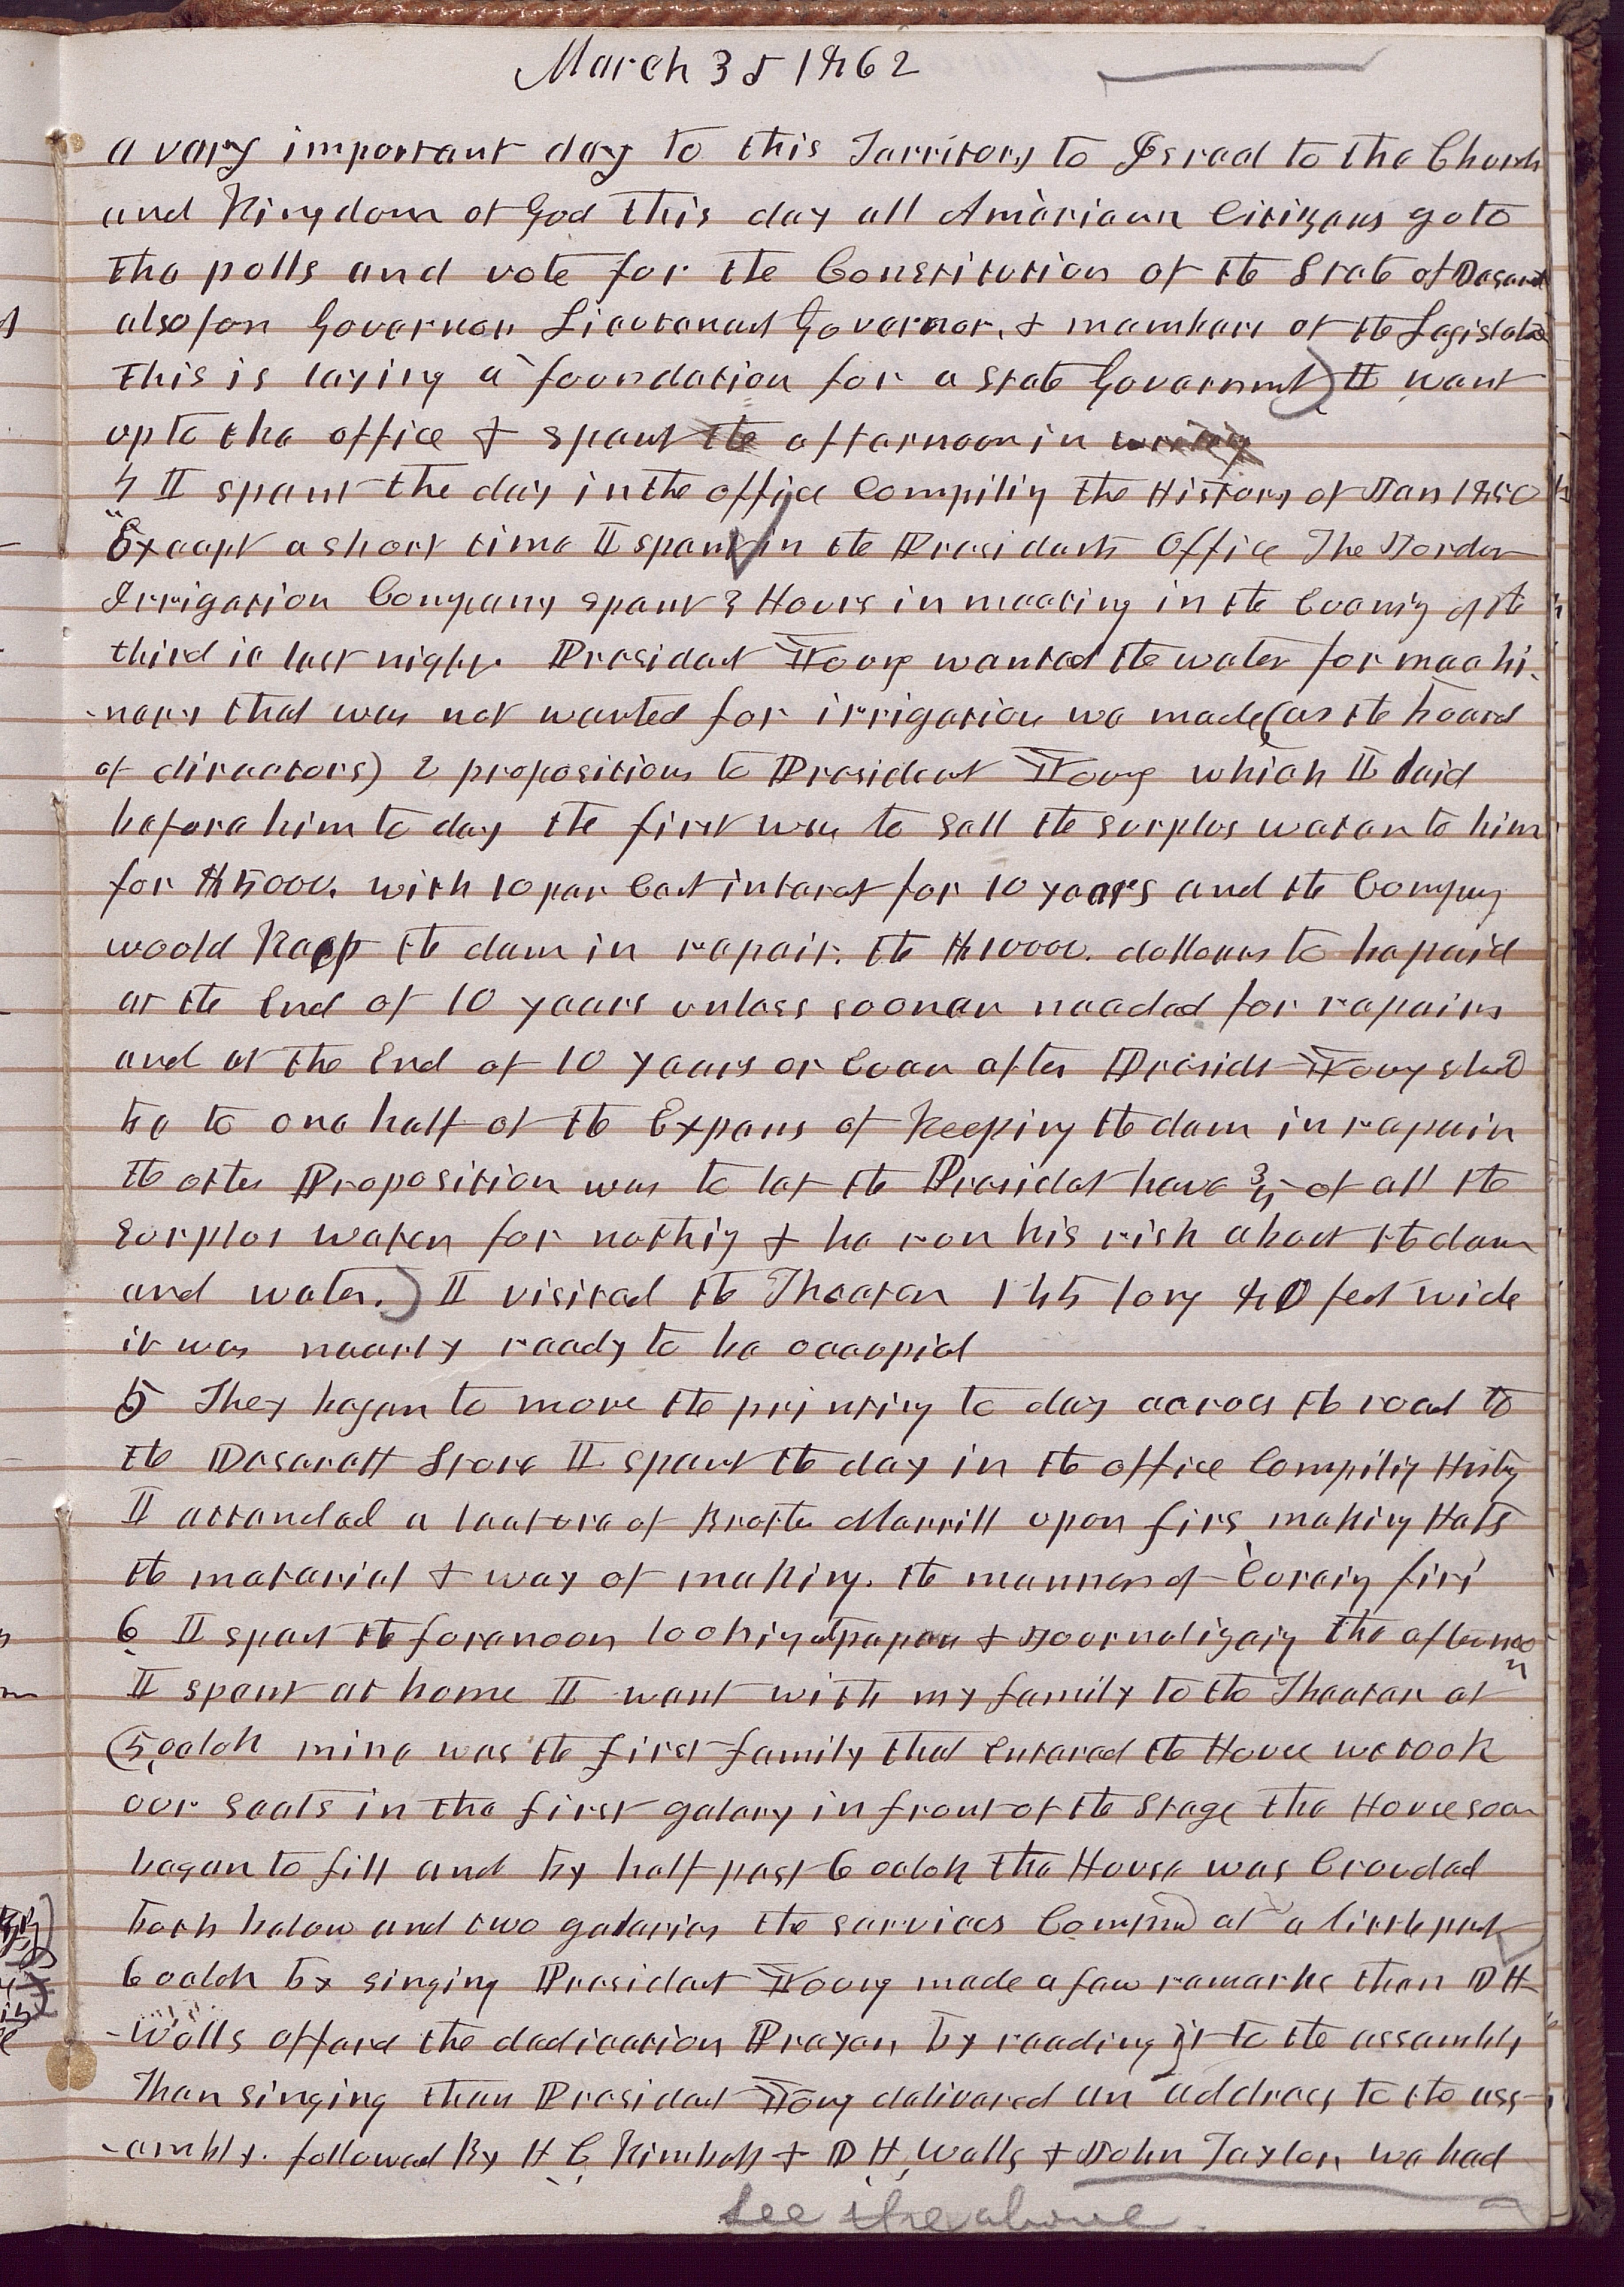 March 3d 1862
a very important day to this Territory to Israel to the Church
and Kingdom of God this day all American Citizens go to
the polls and vote for the Constitution of the State of Deseret
also for Governor, Lieutenant Governor, & members of the Legislature
This is laying a foundation for a State Government) I went
up to the office & spent the afternoon in writing
4 I spent the day in the office Compiling the History of Jan 1850
Except a short time I spent in the Presidents Office The Jordon
Irrigation Company spent 3 Hours in meeting in the Evening of the
third ie last night. President Young wanted the water for machi-
-nery that was not wanted for irrigation we made (as the board
of directors) 2 propositions to President Young which I laid
before him to day the first was to sell the surplus water to him
for $5000. with 10 per Cent interest for 10 years and the Company
would Keep the dam in repair. the $10000. dollars to be paid
at the End of 10 years unless sooner needed for repairs
and at the End of 10 years or Ever after Presidt Young shed
be to one half of the Expens of Keeping the dam in repair
the other Proposition was to let the President have 3/4 of all the
surplus water for nothing & he run his risk about the dam
and water.) I visited the Theater 145 long 80 feet wide
it was nearly ready to be occupied
5 They began to move the printing to day across the road to
the Deserett Store I spent the day in the office Compiling Histy
I attended a lecture of Brother Merrill upon firs making Hats
the material & way of making. the manner of Coreing firs
6 I spent the forenoon looking at papers & Journalizeig the afternoon
I spent at home I went with my family to the Theater at
5, oclok mine was the first family that Entered the House we took
our seats in the first galery in front of the Stage the House soon
began to fill and by half past 6 oclok the House was Crouded
both below and two galaries the services Commed at a little past
6 oclok by singing President Young made a few remarks then D H
-Wells offerd the dedication Prayer, by reading it to the assembly
Then singing then President Young delivered an address to the ass-
-embly. followed By H C, Kimball & D H, Wells & John Taylor, we had
See the above